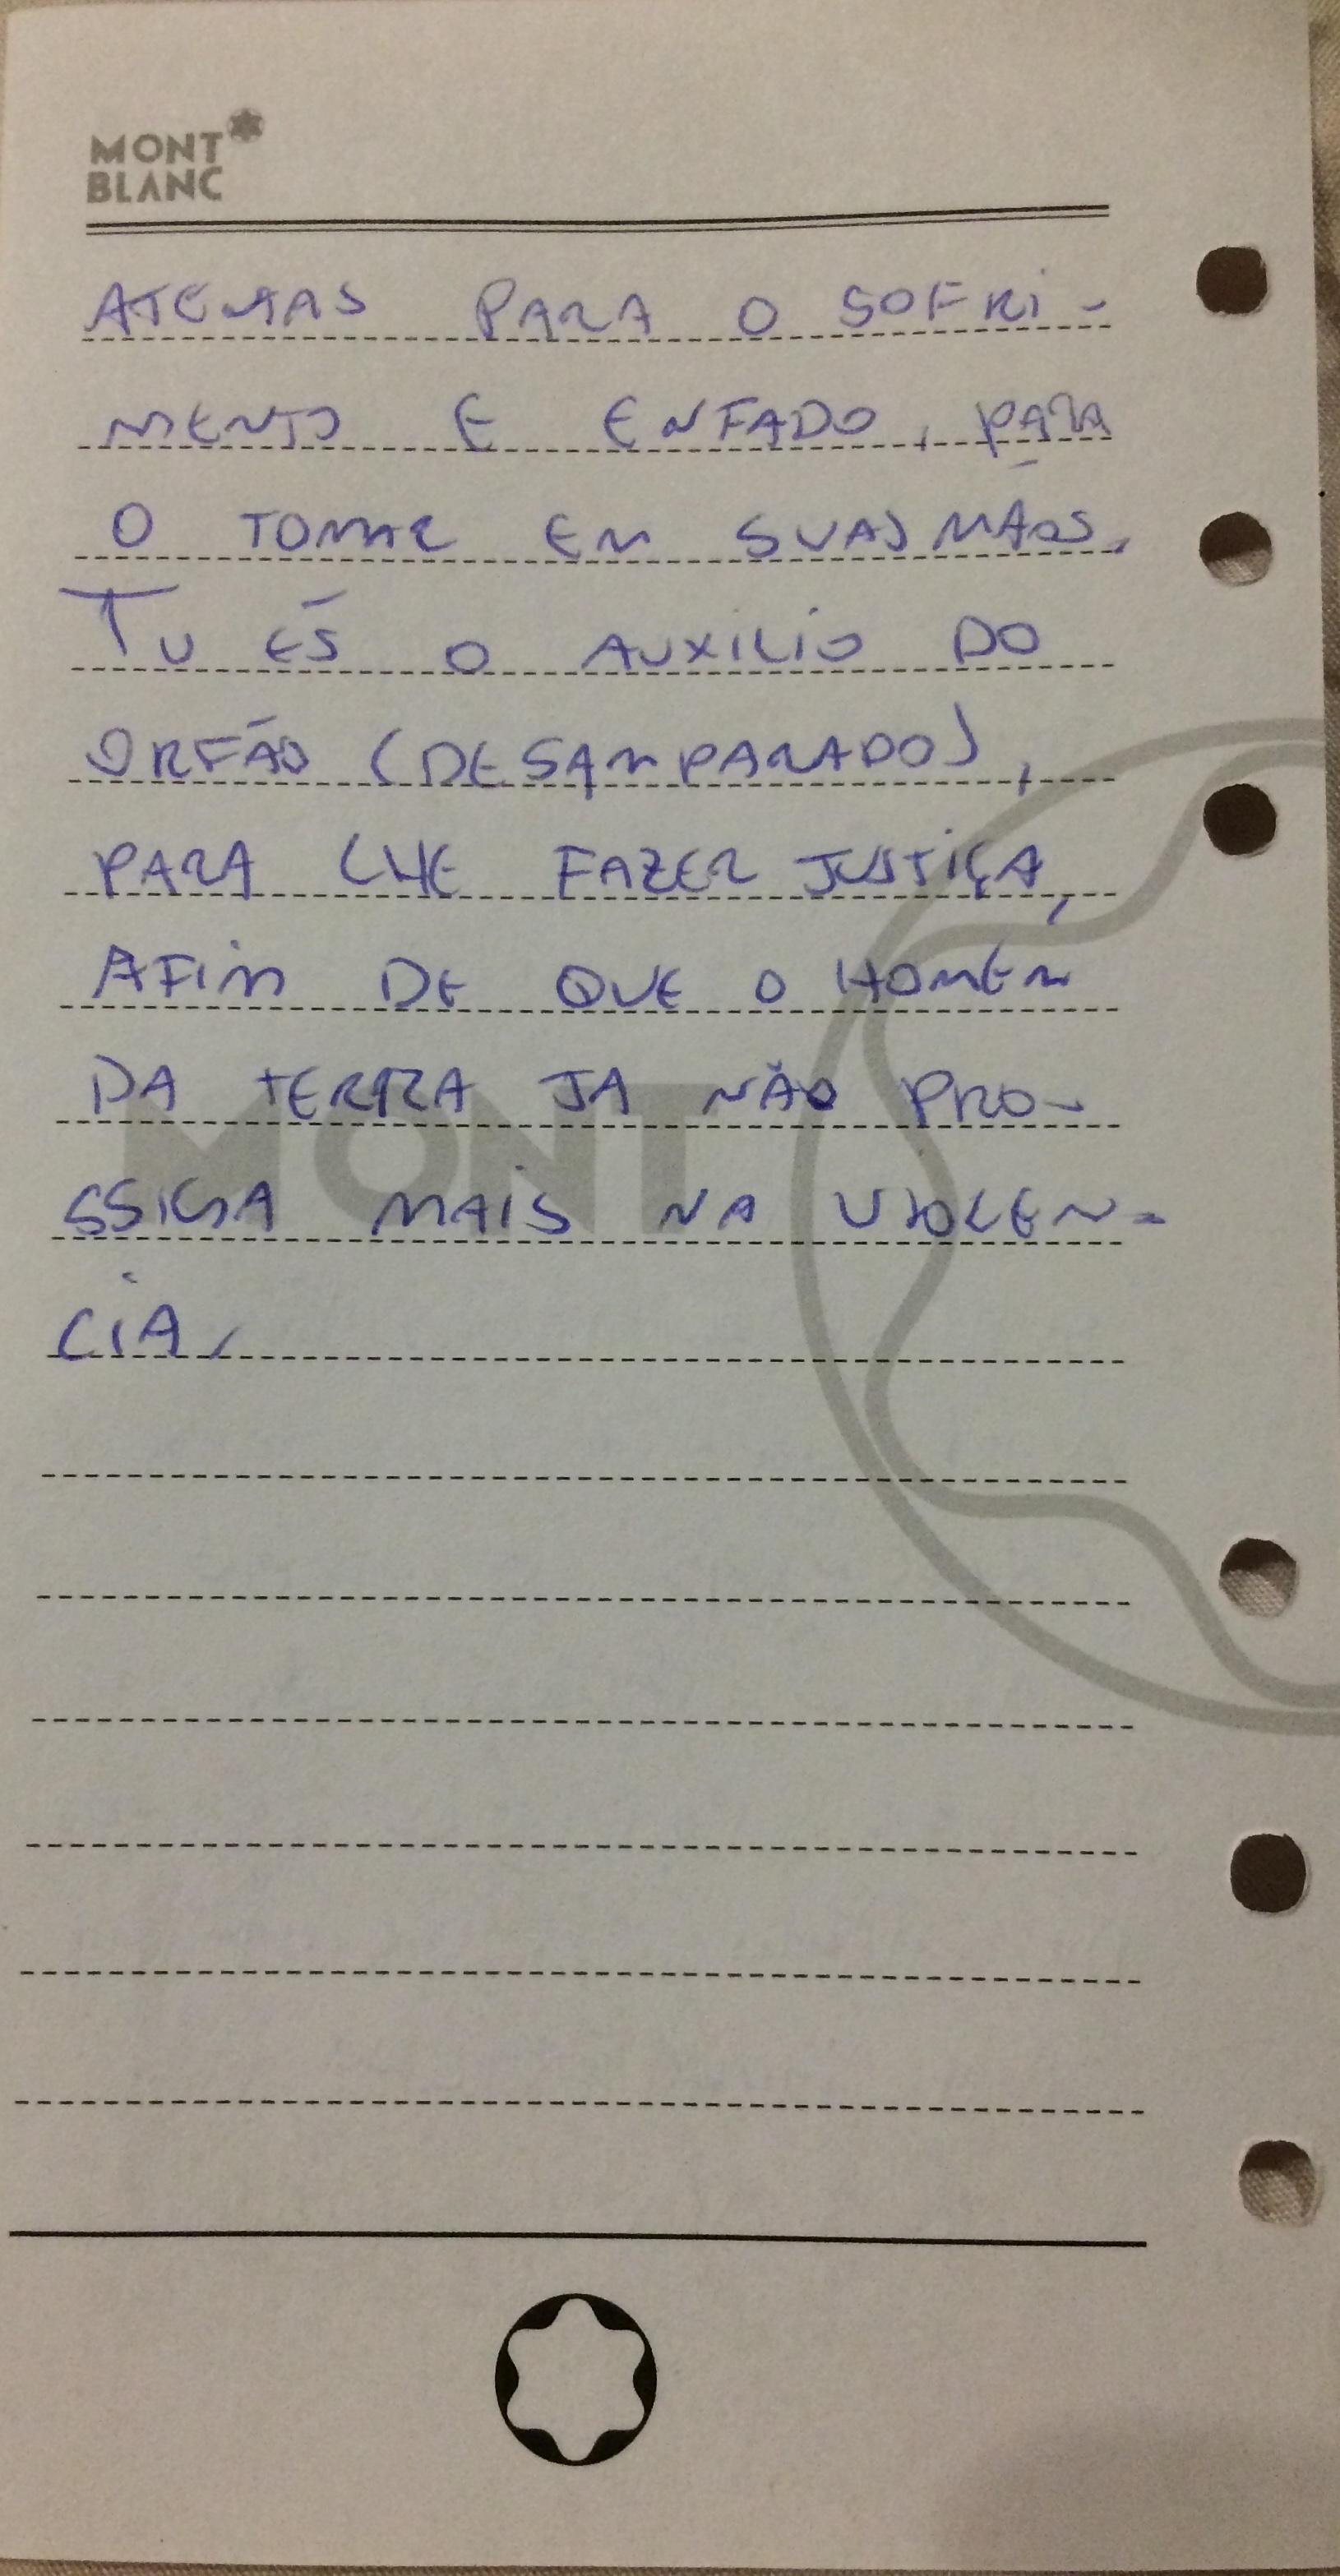 MONT
BLANC
ATENTAS PARA O SOFRI-
MENTO E ENFADO, PARA
O TOMAR EM SUAS MÃOS.
TU ÉS O AUXILIO DO
ORFÃO (DESAMPARADO),
PARA LHE FAZER JUSTIÇA,
AFIM DE QUE O HOMEM
DA TERRA JA NÃO PRO-
SSIGA MAIS NA VIOLEN-
CIA.
MONT